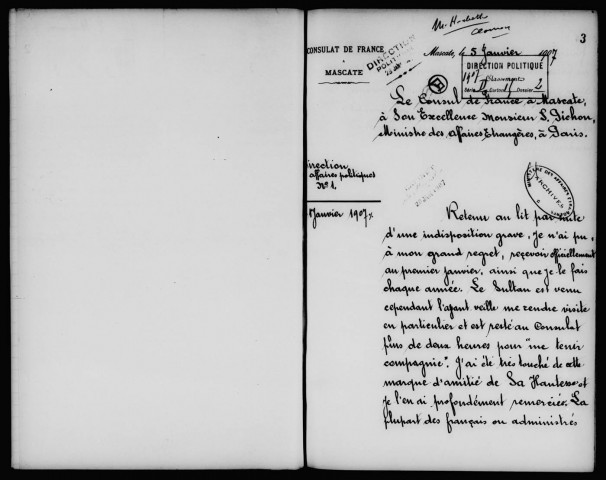 3
CONSULAT DE FRANCE
à
MASCATE
DIRECTION
POLITIQUE
Mascate, le 5 Janvier 1907
DIRECTION POLITIQUE
Classement
Série Carton Dossier 2
Le Consul de France à Mascate,
à Son Excellence Monsieur S. Pichon,
Ministre des Affaires Etrangères, à Paris.
irection
affaires politiques
N° 1.
Janvier 1907.
ARCHIVES
Retenu au lit par suite
d'une indisposition grave, Je n'ai pu,
à mon grand regret, recevoir officiellement
au premier janvier, ainsi que je le fais
chaque année. Le Sultan est venu
cependant l'avant veille me rendre visite
en particulier et est resté au Consulat
plus de deux heures pour "me tenir
compagnie". J'ai été très touché de cette
marque d'amitié de Sa Hautesse et
je l'en ai profondément remerciée. La
plupart des français ou administrés